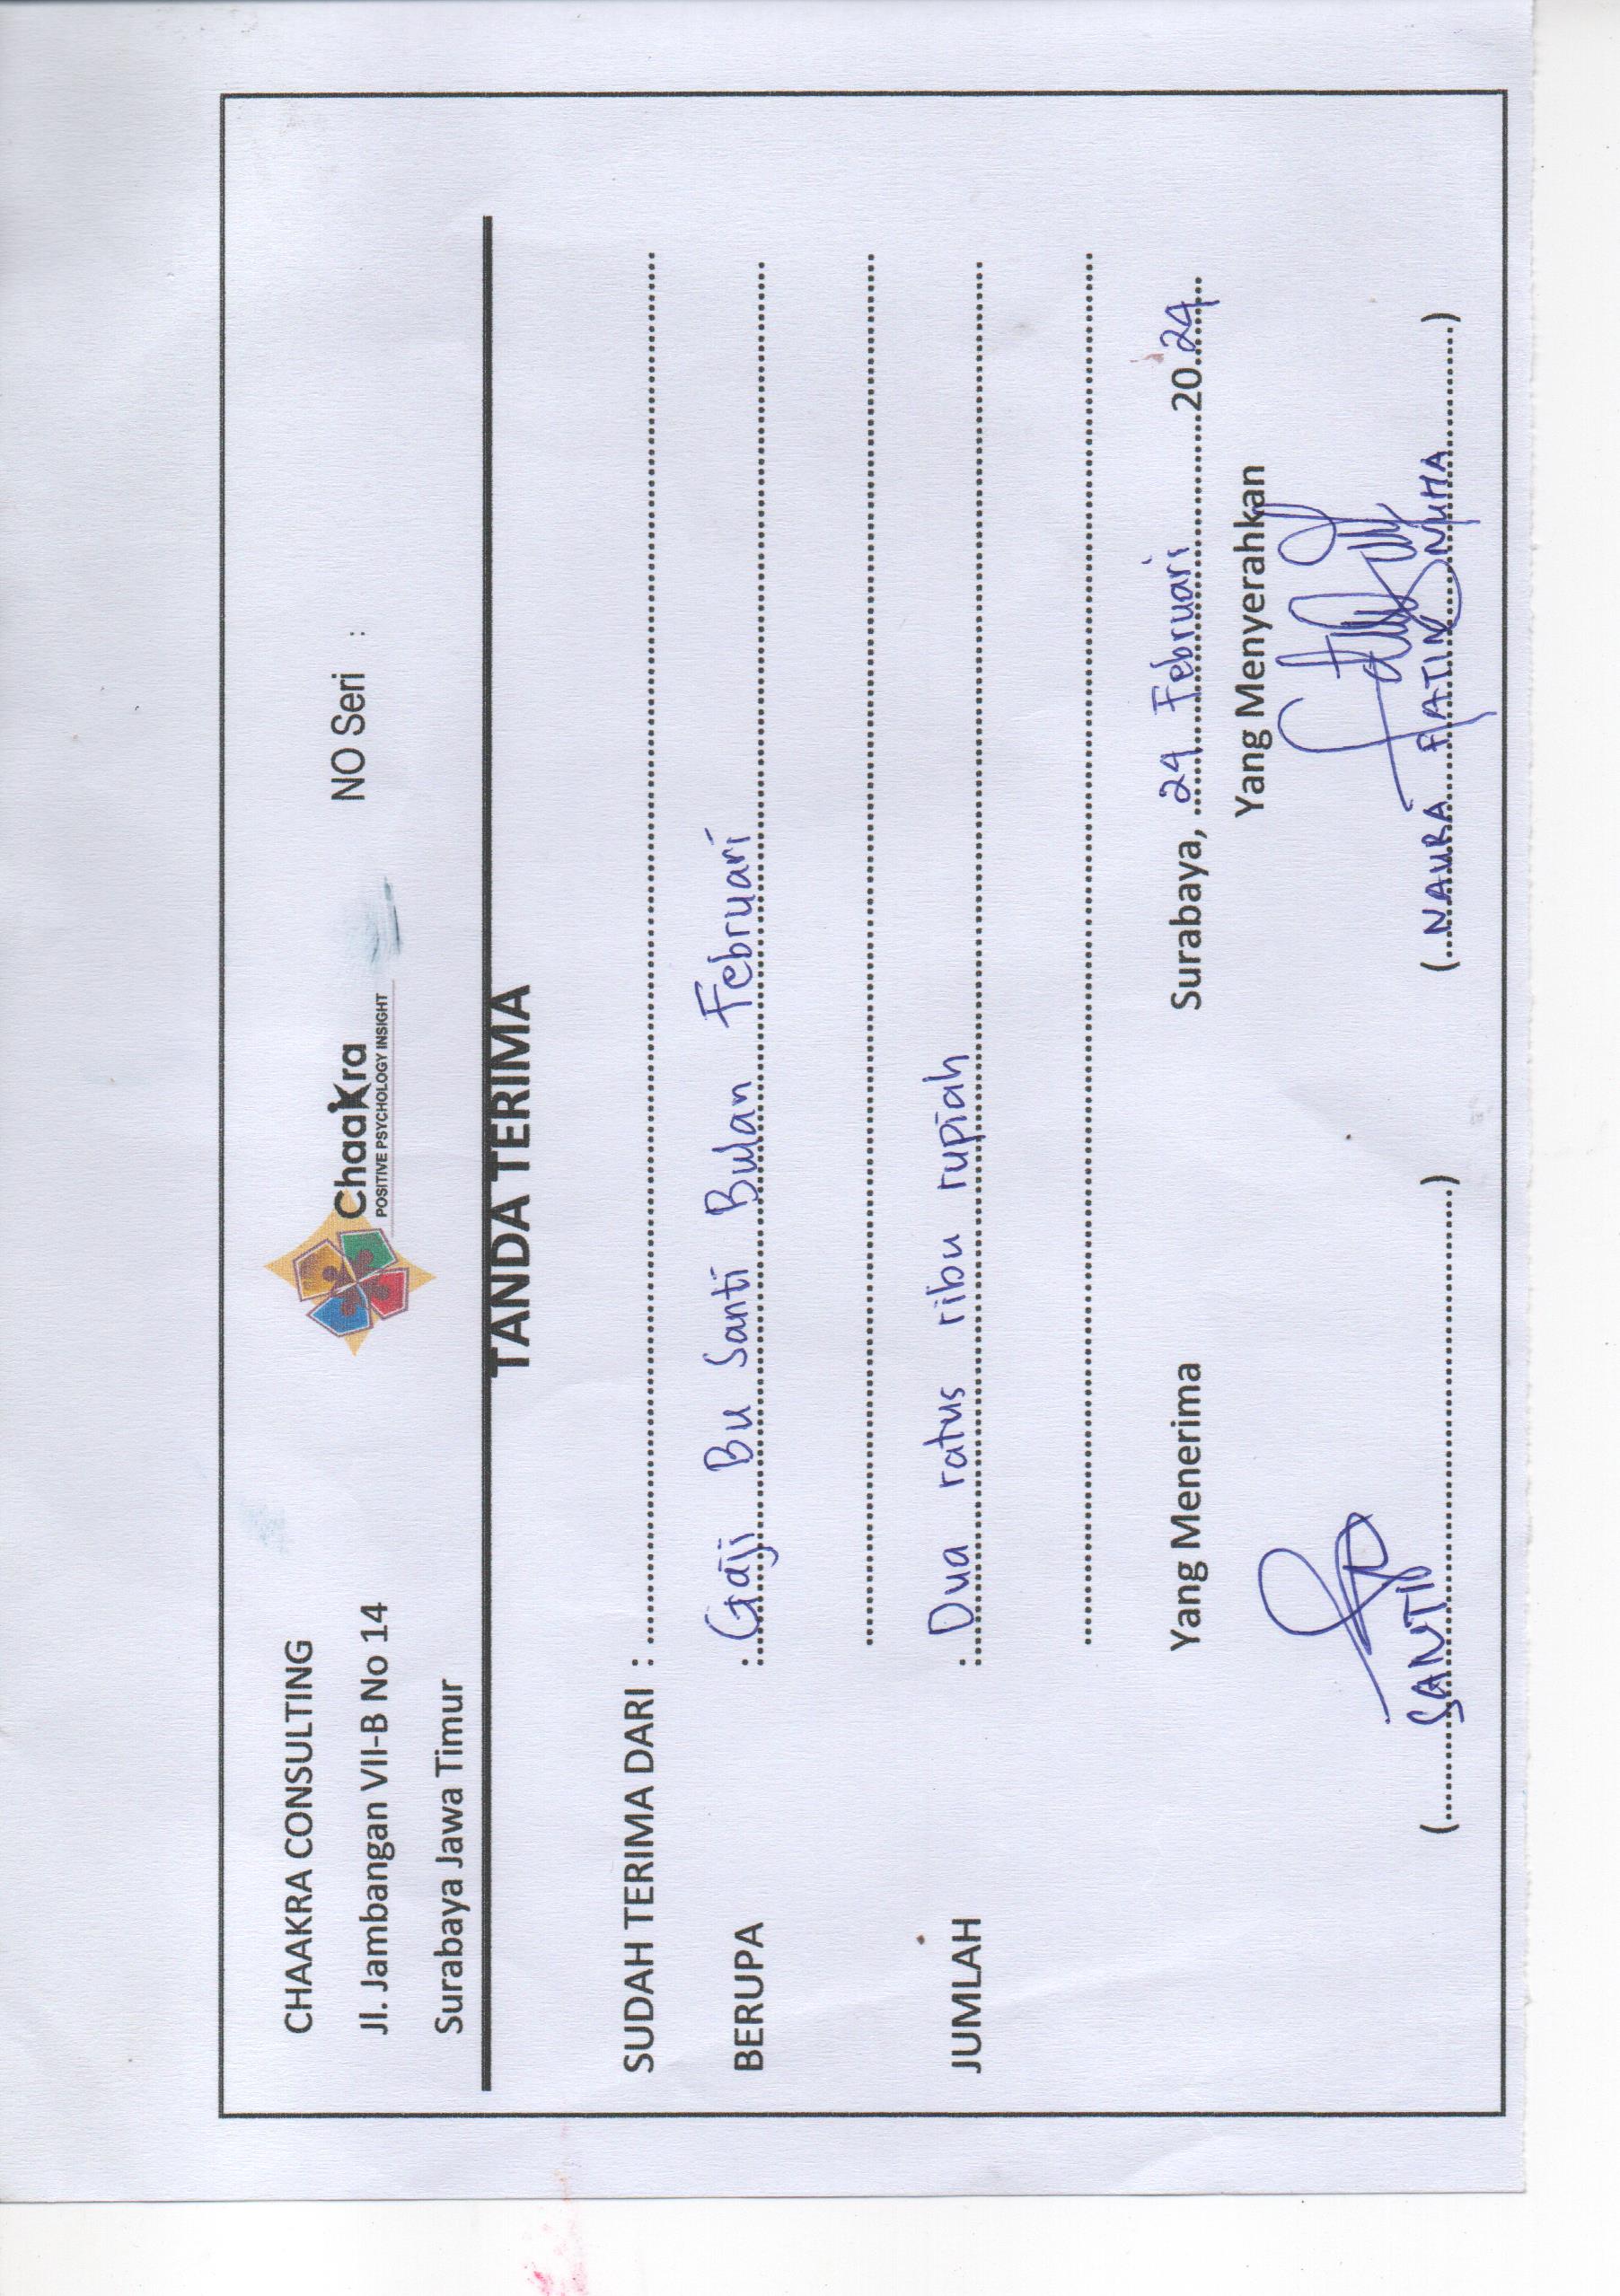 CHAAKRA CONSULTING
Jl. Jambangan VII-B No 14
Surabaya Jawa Timur
Chaakra
POSITIVE PSYCHOLOGY INSIGHT
NO Seri :
TANDA TERIMA
SUDAH TERIMA DARI : ........................................
BERUPA : Gaji Bu Santi Bulan Februari
........................................
JUMLAH : Dua ratus ribu rupiah
........................................
Yang Menerima
Surabaya, 24 Februari 2024
Yang Menyerahkan
(SANTI)
(NAURA FATIN NUHA)